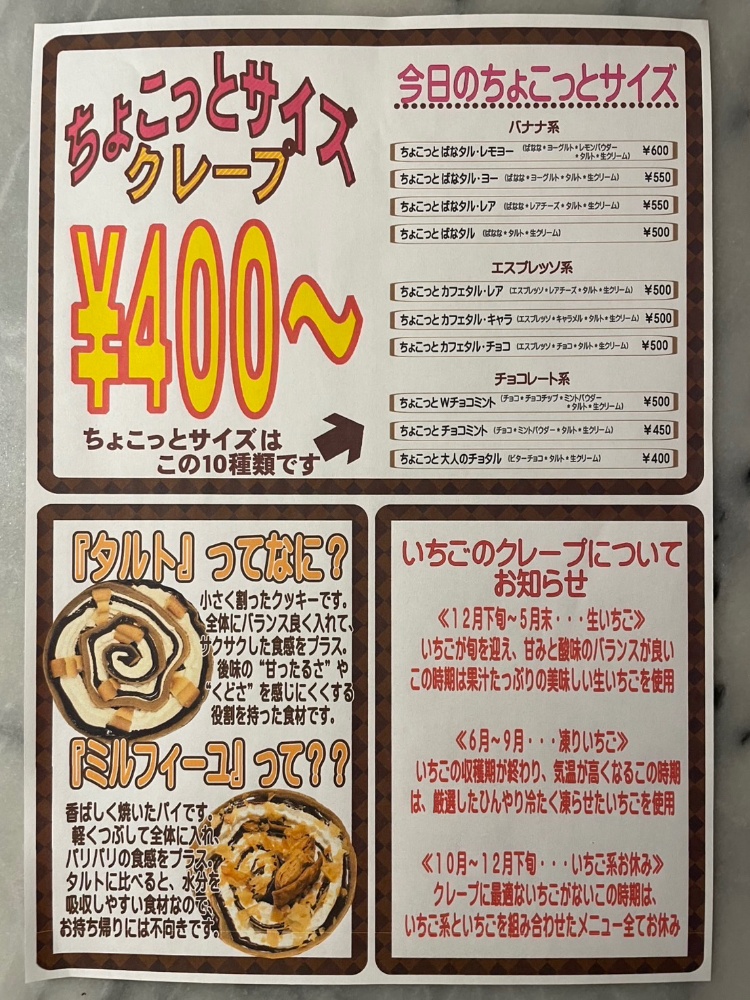 ちょこっとサイズ
クレープ
¥400~
ちょこっとサイズは
この10種類です
今日のちょこっとサイズ
バナナ系
ちょこっと ばなタル・レモヨー (ばなな*ヨーグルト*レモンパウダー
*タルト*生クリーム) ¥600
ちょこっと ばなタル・ヨー (ばなな*ヨーグルト*タルト*生クリーム) ¥550
ちょこっと ばなタル・レア (ばなな*レアチーズ*タルト*生クリーム) ¥550
ちょこっと ばなタル (ばなな*タルト*生クリーム) ¥500
エスプレッソ系
ちょこっと カフェタル・レア (エスプレッソ*レアチーズ*タルト*生クリーム) ¥500
ちょこっと カフェタル・キャラ (エスプレッソ*キャラメル*タルト*生クリーム) ¥500
ちょこっと カフェタル・チョコ (エスプレッソ*チョコ*タルト*生クリーム) ¥500
チョコレート系
ちょこっと Wチョコミント (チョコ*チョコチップ*ミントパウダー
*タルト*生クリーム) ¥500
ちょこっと チョコミント (チョコ*ミントパウダー*タルト*生クリーム) ¥450
ちょこっと 大人のチョタル (ビターチョコ*タルト*生クリーム) ¥400
『タルト』ってなに?
小さく割ったクッキーです。
全体にバランス良く入れて、
サクサクした食感をプラス。
後味の“甘ったるさ”や
“くどさ”を感じにくくする
役割を持った食材です。
『ミルフィーユ』って??
香ばしく焼いたパイです。
軽くつぶして全体に入れ、
パリパリの食感をプラス。
タルトに比べると、水分を
吸収しやすい食材なので、
お持ち帰りには不向きです。
いちごのクレープについて
お知らせ
≪12月下旬~5月末・・・生いちご≫
いちごが旬を迎え、甘みと酸味のバランスが良い
この時期は果汁たっぷりの美味しい生いちごを使用
≪6月~9月・・・凍りいちご≫
いちごの収穫期が終わり、気温が高くなるこの時期
は、厳選したひんやり冷たく凍らせたいちごを使用
≪10月~12月下旬・・・いちご系お休み≫
クレープに最適ないちごがないこの時期は、
いちご系といちごを組み合わせたメニュー全てお休み